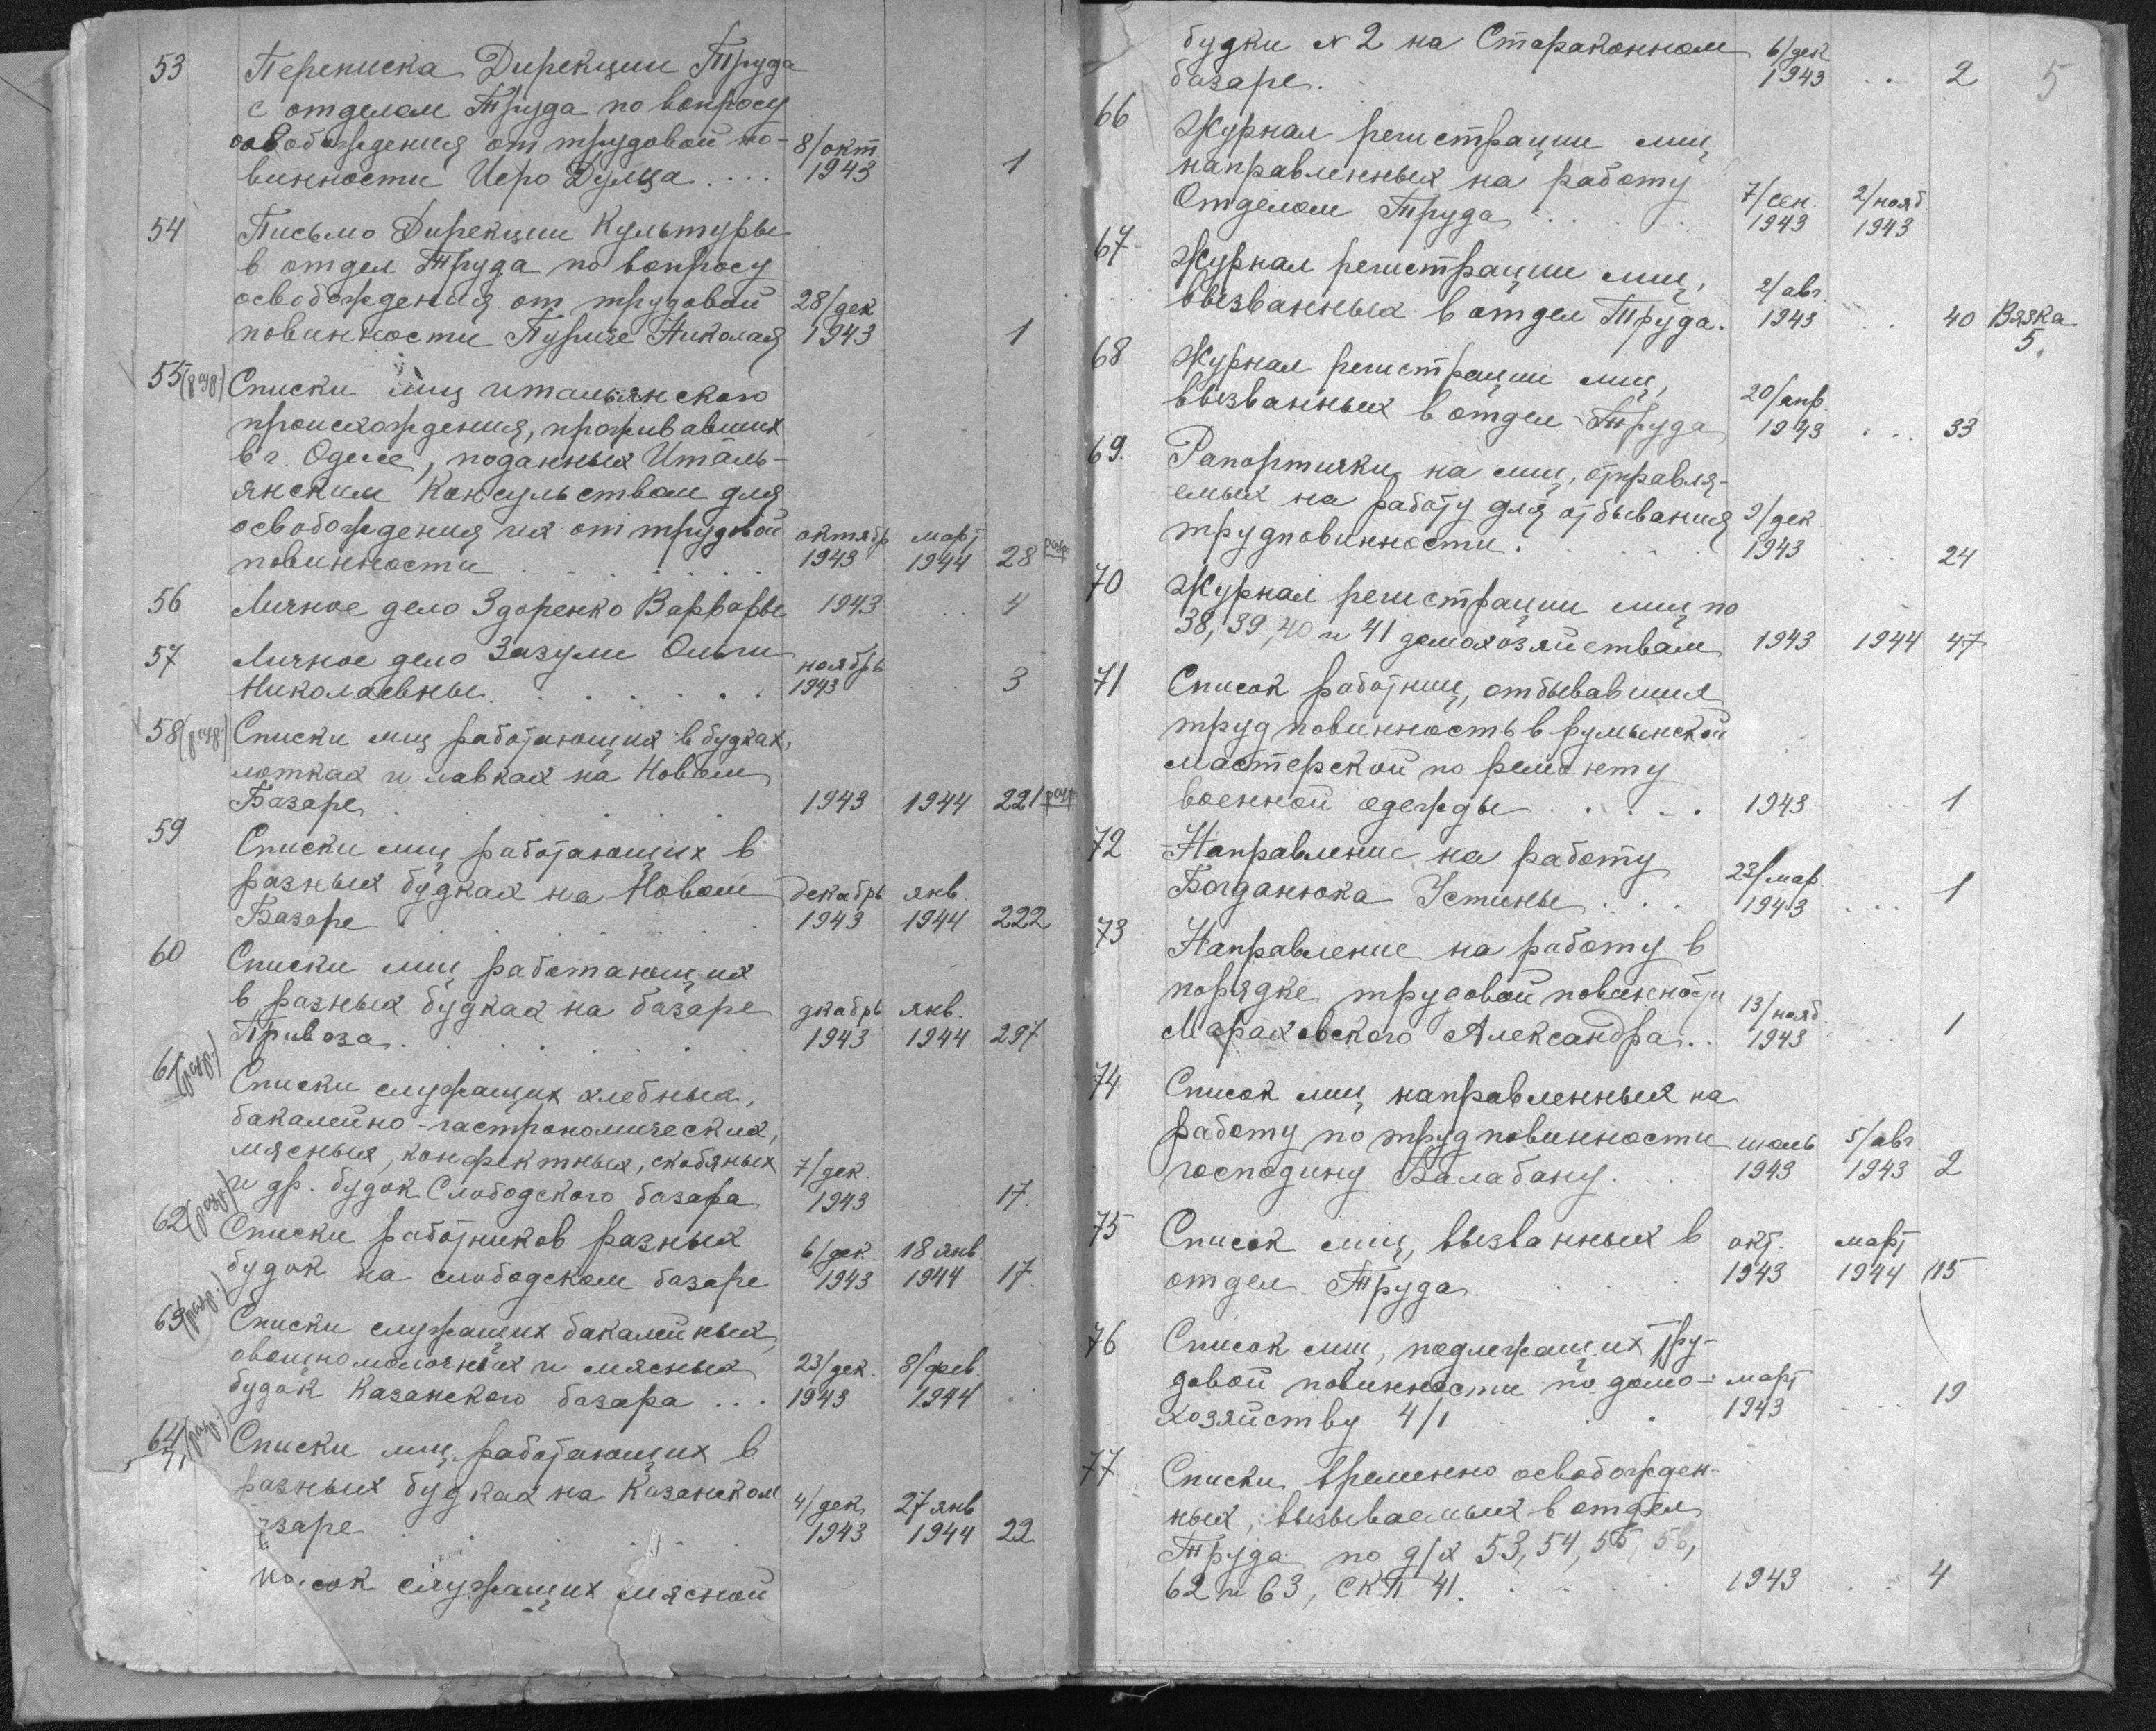 53 Переписка Дирекции Труда
с отделом Труда по вопросу
освобождения от трудовой по- 8/окт
винности Иеро Дулца .... 1943 1
54 Письмо Дирекции Культуры
в отдел Труда по вопросу
освобождения от трудовой 28/дек
повинности Пуриче Николая 1943 1
55 (разр.) Списки лиц итальянского
происхождения, проживавших
в г. Одессе, поданных Италь-
янским Консульством для
освобождения их от трудовой октябр март
повинности . . . . . . . 1943 1944 28 разр
56 Личное дело Здоренко Варвары 1943 . . 4
57 Личное дело Зазули Ольги ноябрь
Николаевны . . . . . . 1943 . . 3
58 (разр.) Списки лиц работающих в будках,
лотках и лавках на Новом
Базаре . . . . . . 1943 1944 221 разр
59 Списки лиц работающих в
разных будках на Новом декабрь янв.
Базаре . . . . . . 1943 1944 222
60 Списки лиц работающих
в разных будках на базаре дкабрь янв.
Привоза . . . . . . 1943 1944 297
61 (разр.) Списки служащих хлебных,
бакалейно-гастрономических,
мясных, конфектных, скобяных 7/дек.
и др. будок Слободского базара 1943 17.
62 (разр.) Списки работников разных 6/дек. 18 янв.
будок на слободском базаре 1943 1944 17.
63 (разр.) Списки служащих бакалейных,
овощно молочных и мясных 23/дек. 8/фев.
будок Казанского базара ... 1943 1944 .
64 (разр.) Списки лиц работающих в
разных будках на Казанском 4/дек 27 янв
заре . . . . . 1943 1944 22
сок служащих мясной
5
будки № 2 на Староконном 6/дек
базаре. 1943 .. 2
66 Журнал регистрации лиц
направленных на работу 7/сен. 2/нояб.
Отделом Труда . . . . . 1943 1943
67 Журнал регистрации лиц, 2/авг.
вызванных в отдел Труда. 1943 . 40 Вязка
5.
68 Журнал регистрации лиц, 20/апр.
вызванных в отдел Труда 1943 ... 33
69. Рапортички на лиц, отправля-
емых на работу для отбывания 2/дек.
трудповинности . . . . . 1943 24
70 Журнал регистрации лиц по
38, 39, 40 и 41 домохозяйствам 1943 1944 47
71 Список работниц, отбывавших
труд повинность в румынской
мастерской по ремонту
военной одежды . . . . . 1943 1
72 Направление на работу 23/мар.
Богданюка Устины . . . 1943 ... 1
73 Направление на работу в
порядке трудовой повинности 13/нояб.
Мараховского Александра .. 1943 .. 1
74 Список лиц направленных на
работу по труд повинности июль 5/авг
господину Балабану. . . 1943 1943 2
75 Список лиц, вызванных в окт. март
отдел Труда . . . 1943 1944 115
76 Список лиц, подлежащих тру-
довой повинности по домо- март
хозяйству 4/1 . . . 1943 ... 19
77 Списки временно освобожден-
ных, вызываемых в отдел
Труда по д/х 53, 54, 55, 56,
62 и 63, СКП 41. . . . . 1943 .. 4